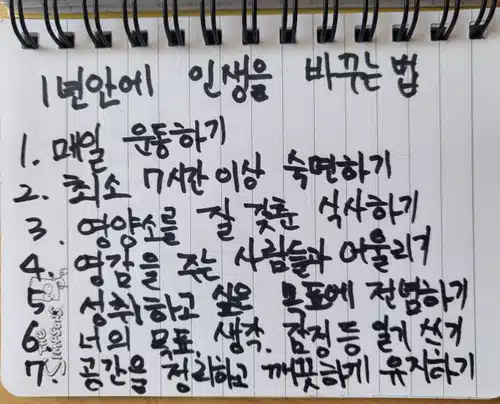 1년안에 인생을 바꾸는 법
1. 매일 운동하기
2. 최소 7시간 이상 숙면하기
3. 영양소를 잘 갖춘 식사하기
4. 영감을 주는 사람들과 어울리기
5 성취하고 싶은 목표에 전념하기
6 너의 목표, 생각, 감정 등 일기 쓰기
7. 공간을 정리하고 깨끗하게 유지하기
THE SIMPSONS